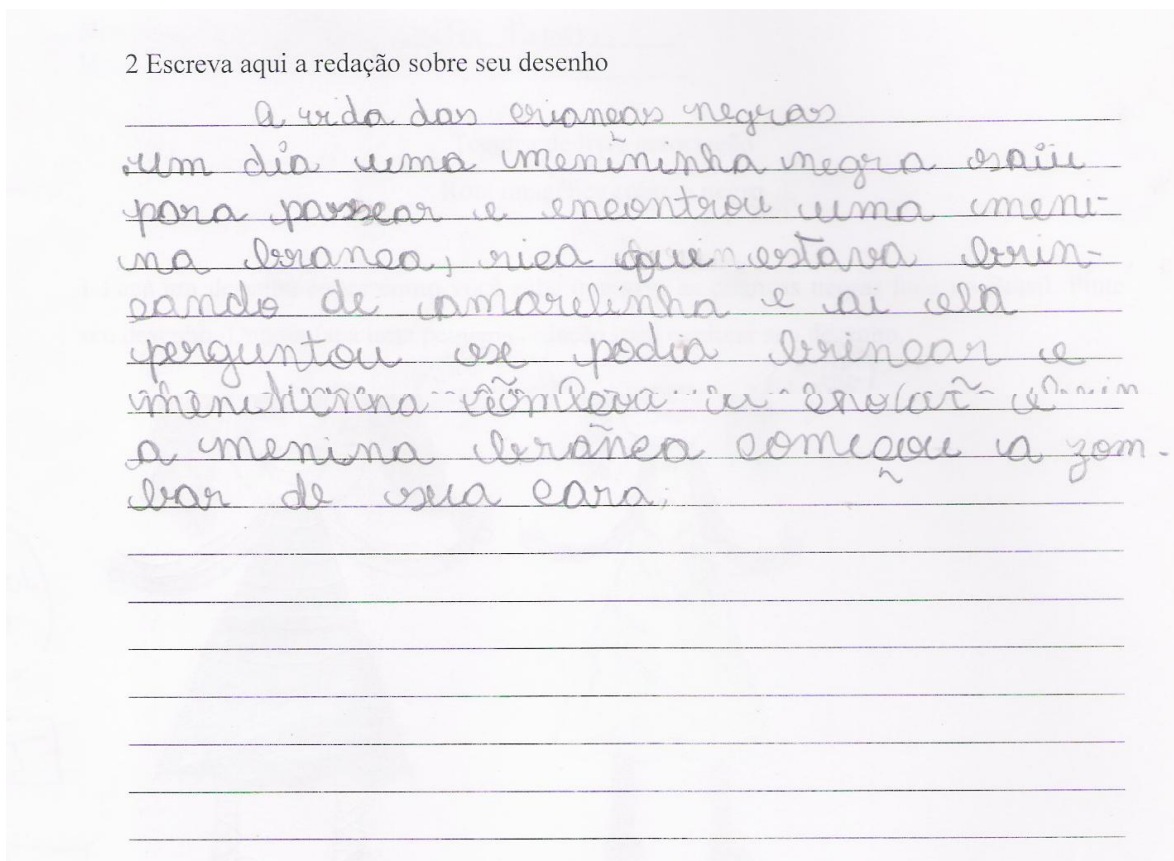 2 Escreva aqui a redação sobre seu desenho
A vida das crianças negras
um dia uma menininha negra saiu
para passear e encontrou uma meni-
na branca, rica que estava brin-
cando de amarelinha e ai ela
perguntou se podia brincar e
a menina branca começou a zom-
bar de sua cara.